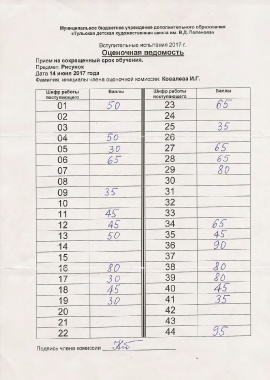 Муниципальное бюджетное учреждение дополнительного образования
«Тульская детская художественная школа им. В.Д. Поленова»
Вступительные испытания 2017 г.
Оценочная ведомость
Прием на сокращенный срок обучения.
Предмет: Рисунок
Дата 14 июня 2017 года
Фамилия, инициалы члена оценочной комиссии: Ковалева И.Г.
Шифр работы поступающего Баллы Шифр работы поступающего Баллы
01 50 23 65
02 24
03 25 35
04 50 26
05 30 27 65
06 65 28 65
07 29 80
08 30
09 35 31
10 32
11 45 33
12 45 34 65
13 50 35 45
14 36 90
15 37
16 80 38 80
17 30 39 80
18 45 40 45
19 30 41 35
20 42
21 43
22 44 95
Подпись члена комиссии